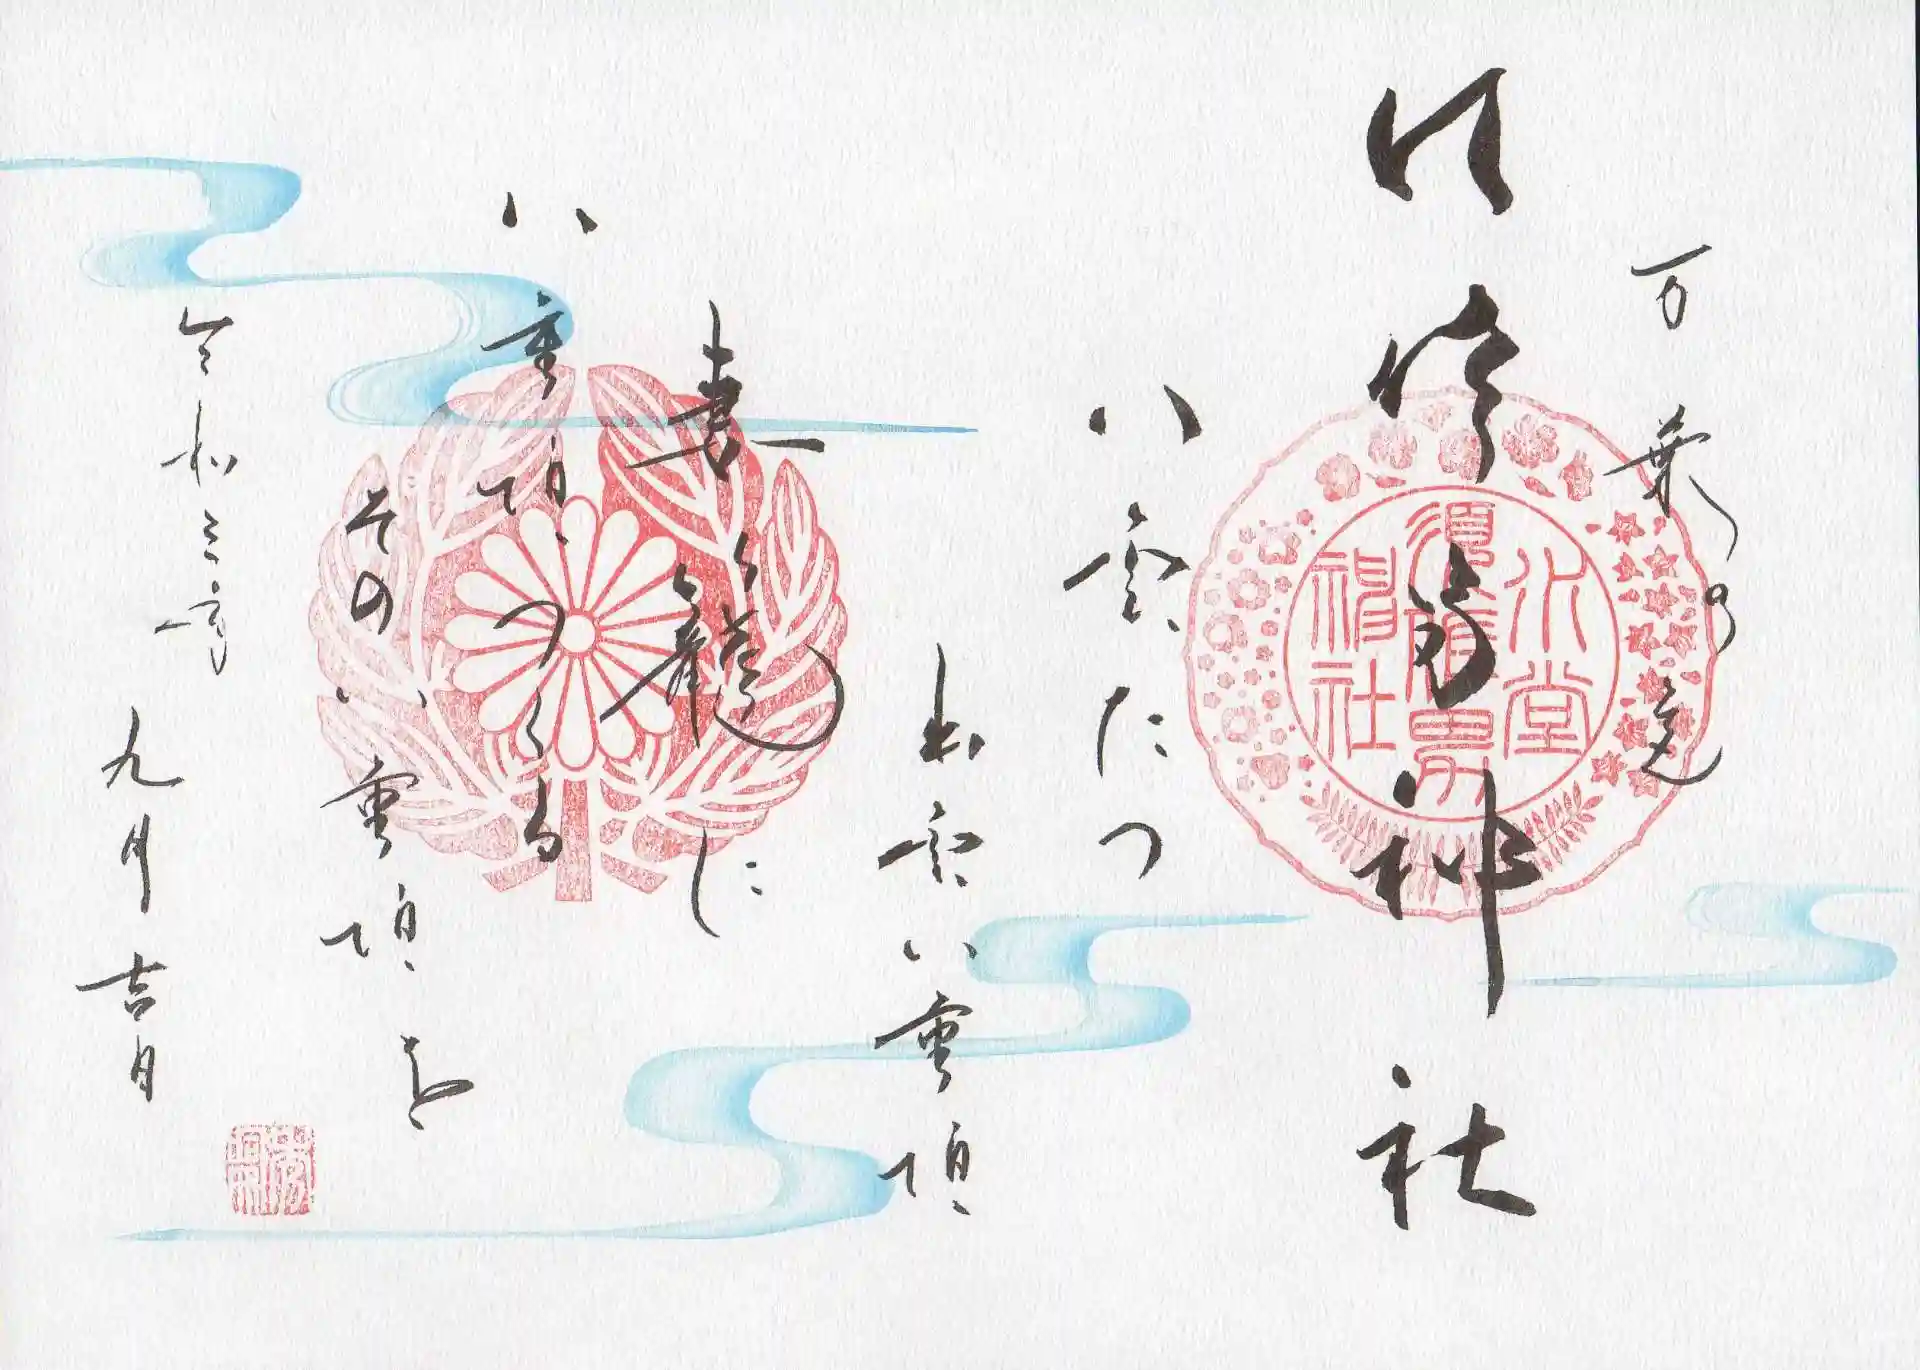 万葉の苑
須佐男神社
水堂
須佐男
神社
八雲たつ
出雲八重垣
妻籠に
八重垣つくる
その八重垣を
令和三年
九月吉日